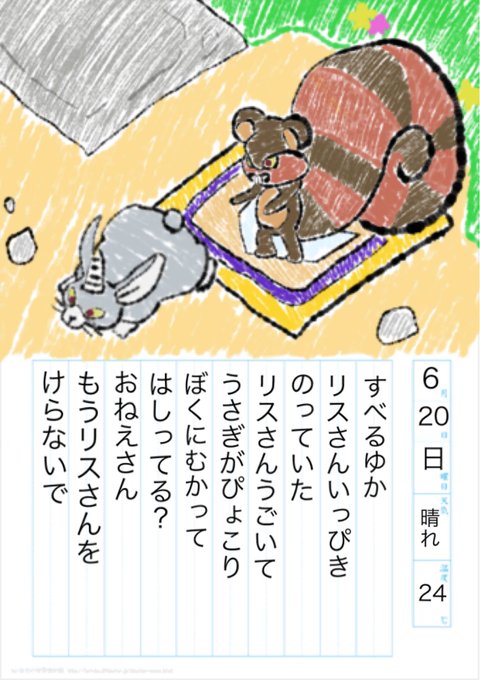 6月
20日
日曜日
天気
晴れ
温度
24℃
すべるゆか
リスさんいっぴき
のっていた
リスさんうごいて
うさぎがぴょこり
ぼくにむかって
はしってる?
おねえさん
もうリスさんを
けらないで